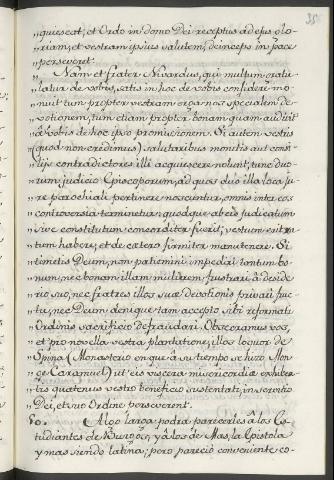 35
„quiescat, et Ordo in domo Dei receptus ad ejus glo-
„riam, et vestram ipsius salutem, deinceps in pace
„perseveret.
„Nam et frater Nivardus, qui multum gratu-
„latur de vobis, satis in hoc de vobis confidere mo-
„nuit tum propter vestram erga nos specialem de-
„votionem, tum etiam propter bonam quam audivit
„â vobis de hoc ipso promissionem. Si autem vestris
„(quod non credimus) salutaribus monitis aut consi-
„lijs contradictores illi acquiescere nolunt, tunc duo-
„rum judicio Episcoporum, ad quos duo illa loca ju-
„re parochiali pertinere noscuntur, omnis inter eos
„controversia terminetur: quodque ab eis judicatum
„sive constitutum concorditer fuerit, vestrum erit ra-
„tum habere, et de cætero firmiter manutenere. Si
„timetis Deum, non patiemini impediri tantum bo-
„num, nec bonam illam mulierem, frustrari â deside-
„rio suo, nec fratres illos suæ devotionis privari fruc-
„tu, nec Deum denique tam accepto sibi reformati
„Ordinis sacrificio defraudari. Obsecramus vos,
„et pro novella vestra plantatione, illos loquor de
„Spina (Monasterio en que â su tiempo se hizo Mon-
„ge Caramuel) ut eis viscera misericordiæ exhibea-
„tis quatenus vestro beneficio sustentati, in servitio
„Dei, et suo Ordine perseverent.
50. Algo larga podrá pareceries â los Es-
tudiantes de Burgos, y â los de Mas, la Epistola
y mas siendo latina, pero pareció conveniente co-